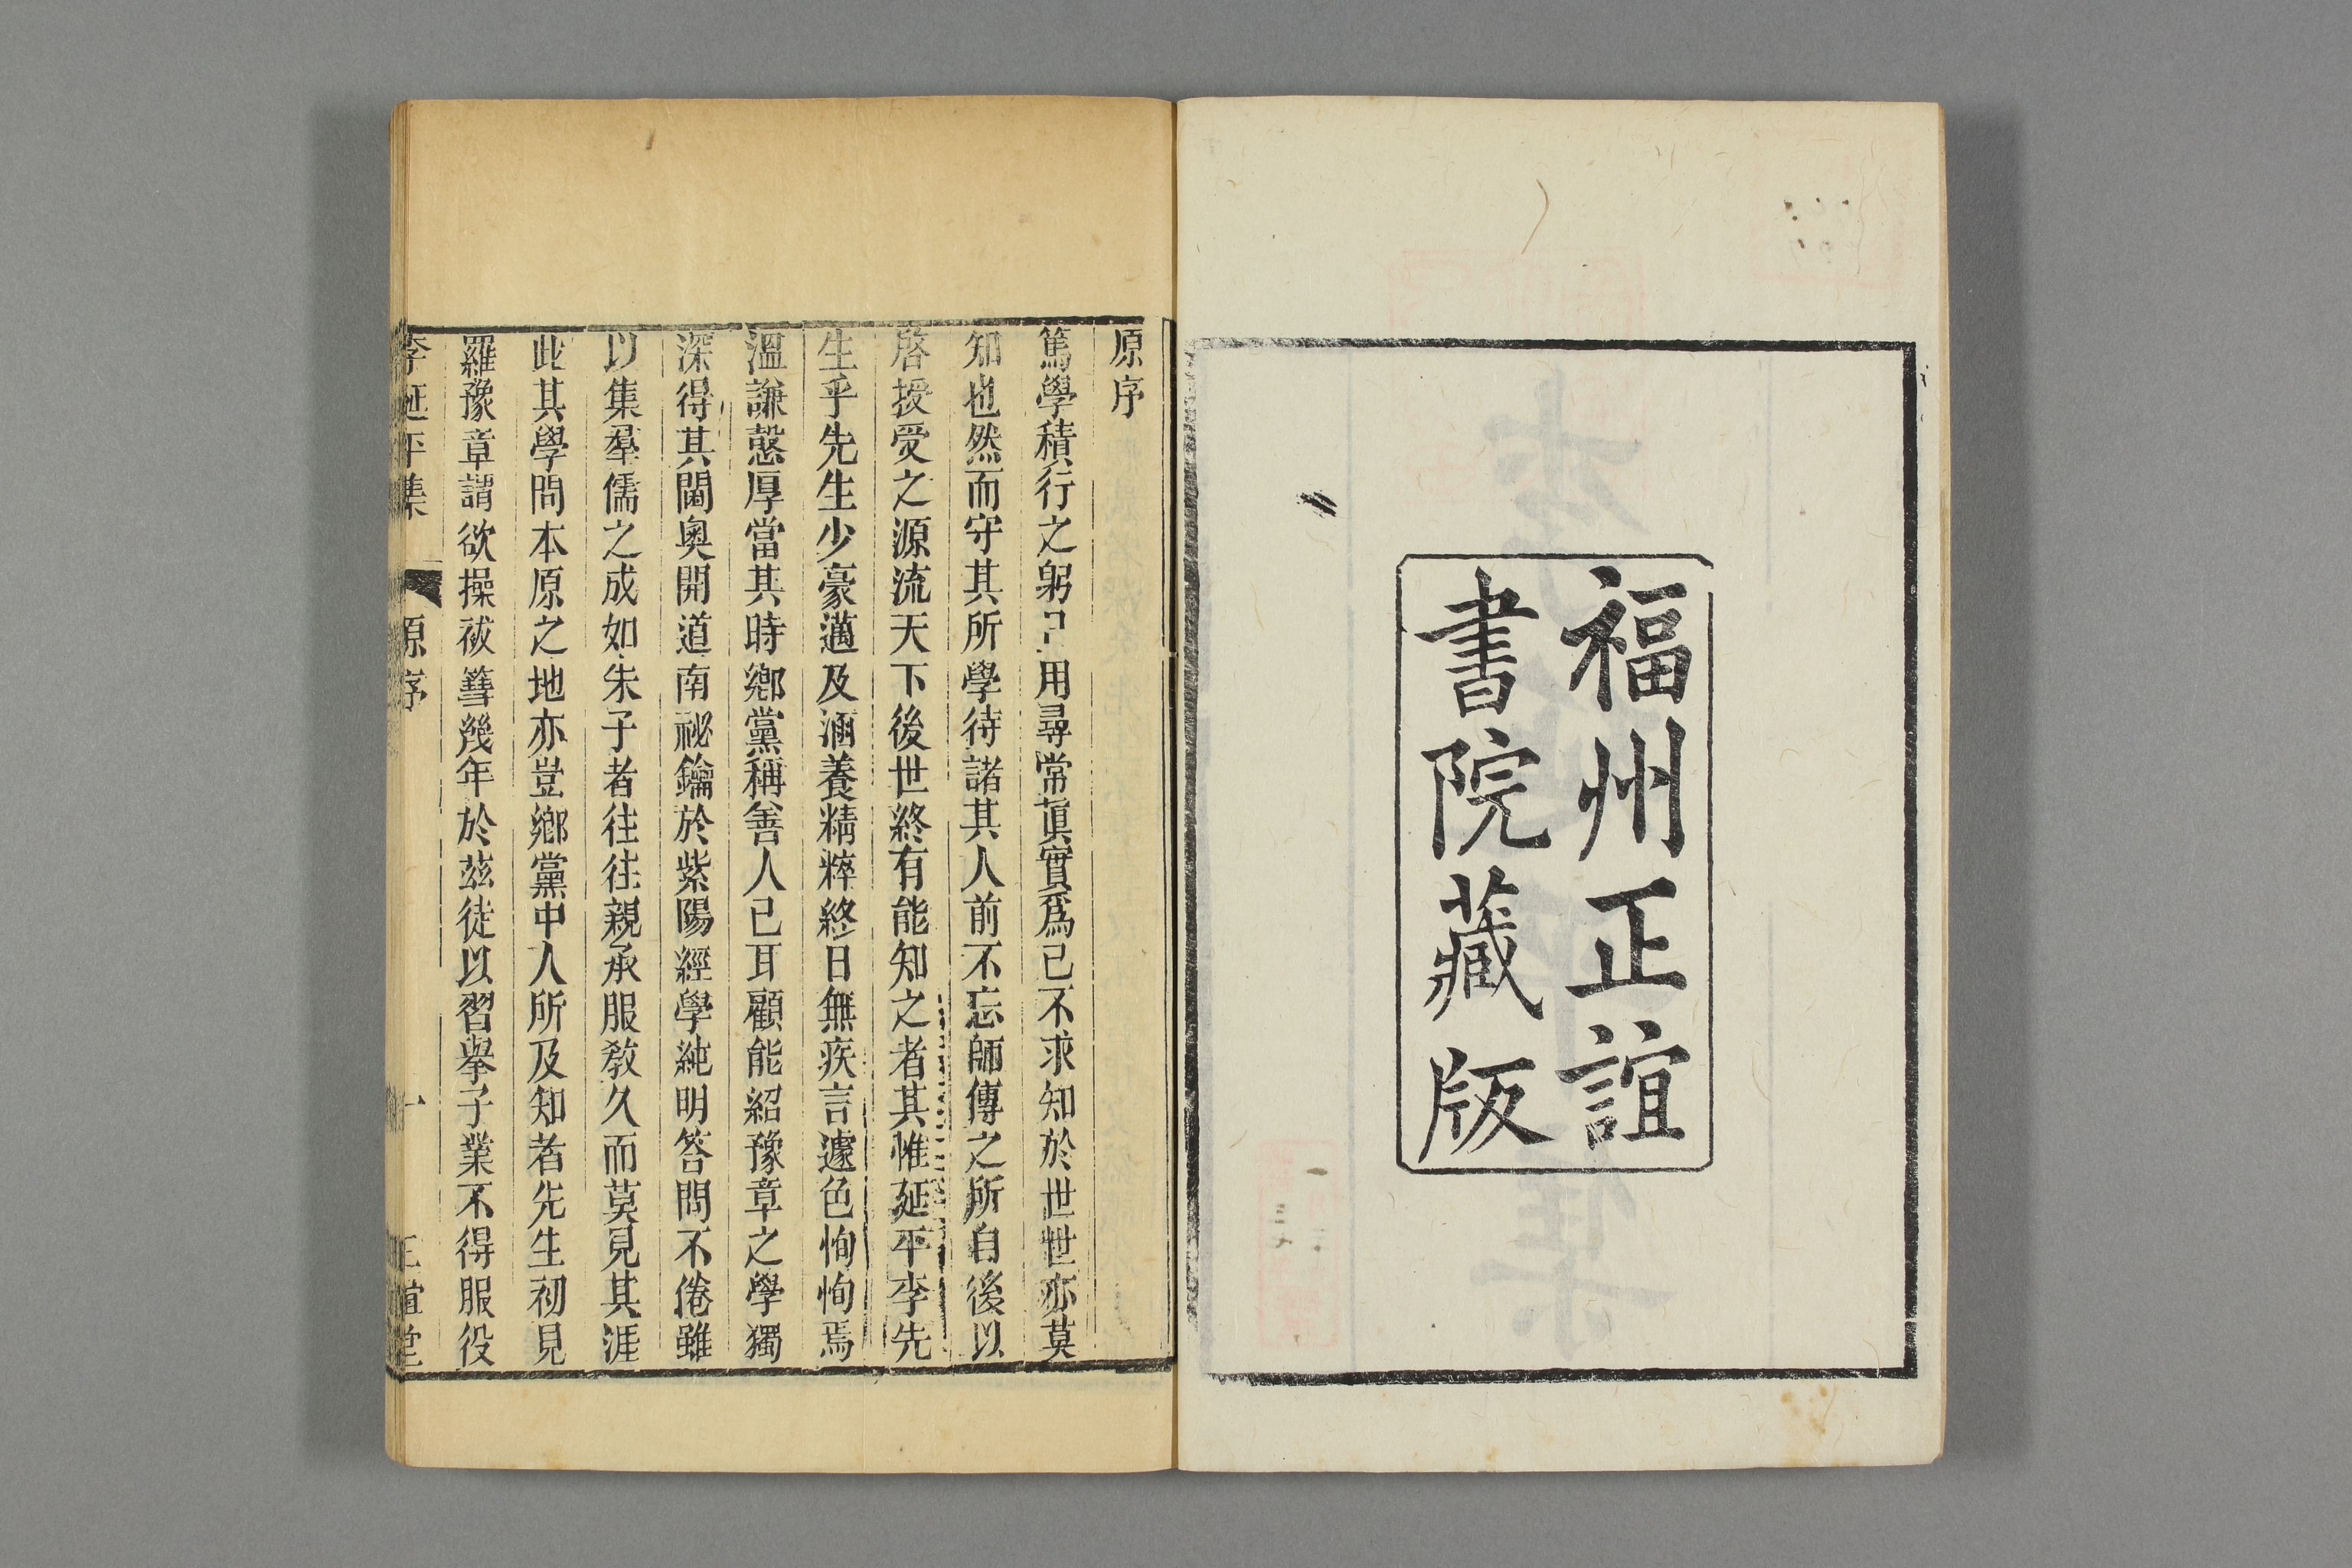 福州正誼
書院藏版
原序
篤學積行之躬用尋常眞實爲己不求知於世世亦莫
知也然而守其所學待諸其人前不忘師傳之所自後以
啓授受之源流天下後世終有能知之者其惟延平李先
生乎先生少豪邁及涵養精粹終日無疾言遽色恂恂焉
溫謙慤厚當其時鄉黨稱善人已耳顧能紹豫章之學獨
深得其閫奧開道南祕鑰於紫陽經學純明答問不倦雖
以集羣儒之成如朱子者往往親承服敎久而莫見其涯
此其學問本原之地亦豈鄉黨中人所及知者先生初見
羅豫章謂欲操袯篲幾年於茲徒以習擧子業不得服役
李延平集 原序 一 正誼堂